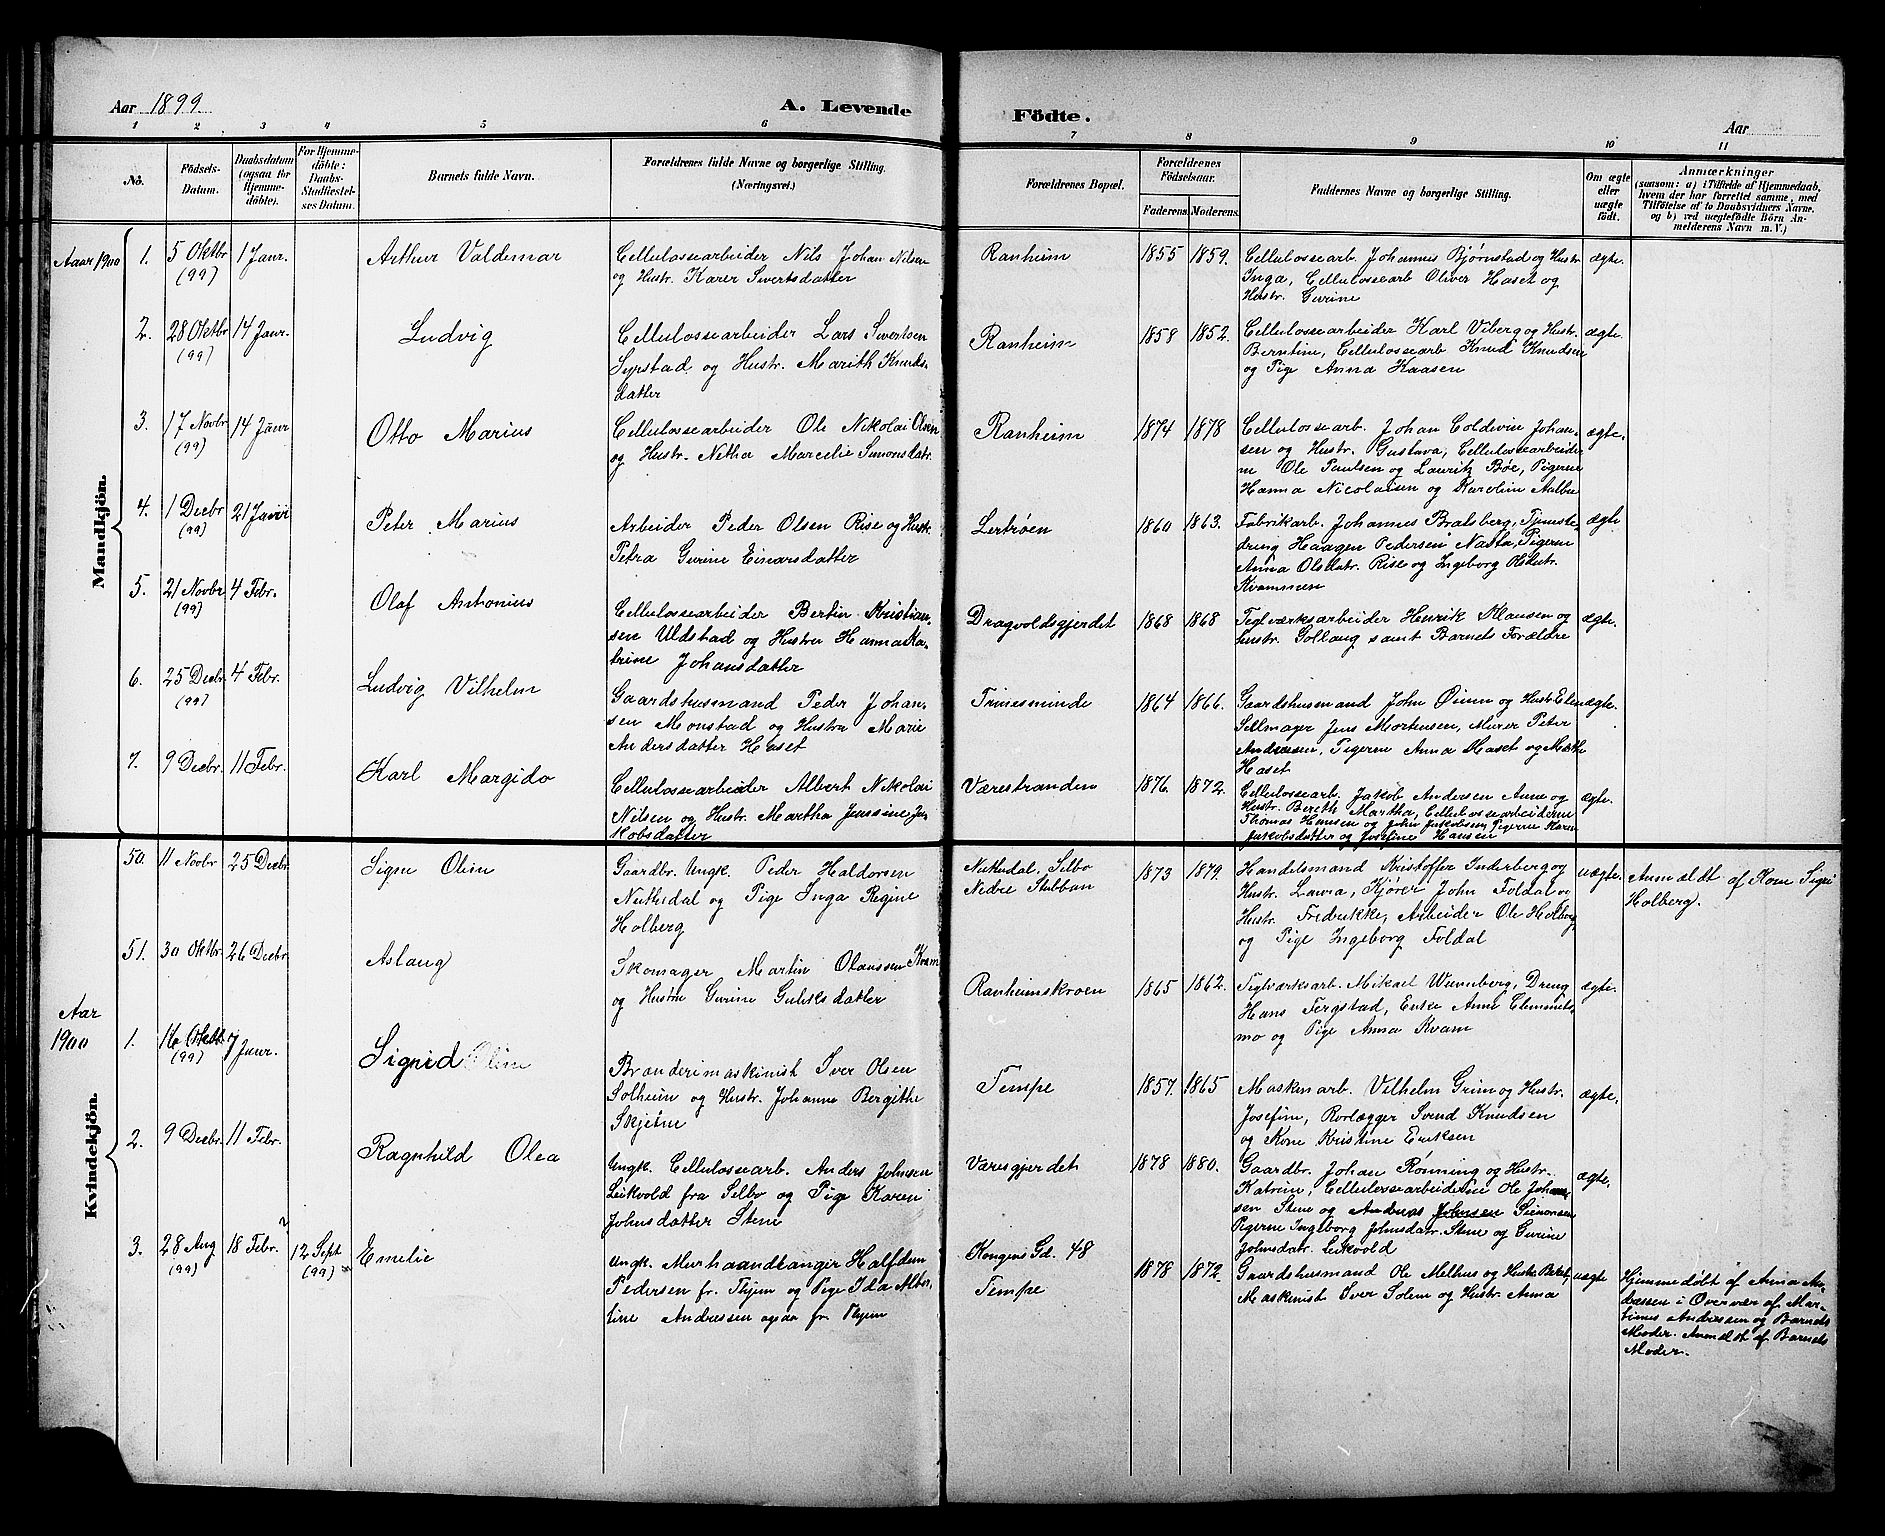 Aar 1899
A. Levende
Födte.
Aar
1 2 3 4 5 6 7 8 9 10 11
No.
Födsels-
Datum.
Daabsdatum
(ogsaa for
Hjemme-
döbte).
For Hjemme-
döbte:
Daabs-
Stadfæstel-
ses Datum.
Barnets fulde Navn.
Forældrenes fulde Navne og borgerlige Stilling.
(Næringsvei.)
Forældrenes Bopæl.
Forældrenes
Födselsaar.
Faderens. Moderens.
Faddernes Navne og borgerlige Stilling.
Om ægte
eller
uægte
födt.
Anmærkninger
(saasom: a) i Tilfælde af Hjemmedaab,
hvem der har forrettet samme, med
Tilföielse af to Daabsvidners Navne,
og b) ved uægtefödte Börn An-
melderens Navn m. V.)
Mandkjön.
Aaar 1900
1. 5 Oktbr (99) 1 Janr. Arthur Valdemar
Cellulossearbeider Nils Johan Nilsen
og Hustr. Karer Sivertsdatter
Ranheim 1855 1859.
Cellulossearb. Johannes Bjørnstad og Hustr
Inga, Cellulossearb Oliver Haset og
Hustr. Gurine
ægte.
2. 28 Oktbr (99) 14 Janr. Ludvig
Cellulossearbeider Lars Sivertsen
Sypstad og Hustr. Marith Knuds-
datter
Ranheim 1858 1852.
Cellulossearbeider Karl Viberg og Hustr.
Berntine, Cellulossearb Knud Knudsen
og Pige Anna Kaasen
ægte.
3. 17 Novbr (99) 14 Janr Otto Marius
Cellulossearbeider Ole Nikolai Olsen
og Hustr. Netha Marcelie Simonsdatr.
Ranheim 1874 1878
Cellulossearb. Johan Coldevin Johan-
sen og Hustr. Gustava, Cellulossearbeider
ne Ole Paulsen og Lauritz Bøe, Pigerne
Hanna Nicolaisen og Karoline Aalbu
ægte.
4. 1 Decbr (99) 21 Janr Peter Marius
Arbeider Peder Olsen Rise og Hustr.
Petra Gurine Einarsdatter
Lertrøen 1860 1863.
Fabrikarb. Johannes Bratsberg, Tjeneste-
dreng Haagen Pedersen Nasta, Pigerne
Anna Olsdatr. Rise og Ingeborg
Kvammen
ægte
5. 21 Novbr (99) 4 Febr. Olaf Antonius
Cellulossearbeider Bertin Kristian-
sen Udstad og Hustru Hanna Ka-
trine Johansdatter
Dragvoldsgjerdet 1868 1868
Teglværksarbeider Henrik Klausen og
Hustr. Sollaug samt Barnets Forældre
ægte.
6. 25 Decbr. (99) 4 Febr. Ludvig Vilhelm
Gaardshusmand Peder Johan-
sen Monstad og Hustru Marie
Andersdatter Haset
Trinesminde 1864 1866.
Gaardshusmand John Øien og Hustr Elen
Sellmager Jens Mortensen, Murer Peter
Andresen, Pigerne Anna Haset og Mætte
Haset
ægte.
7. 9 Decbr. 11 Febr. Karl Margido
Cellulossearbeider Albert Nikolai
Nilsen og Hustr. Martha Jenssine Ja-
kobsdatter
Værestranden 1876. 1872.
Cellulossearb. Jakob Andersen Aune og
Hustr. Bereth Martha, Cellulossearbeiderne
Thomas Hansen og John Jakobsen, Pigerne Karen
Jakobsdatter og Josefine Hansen
ægte.
Kvindekjön.
50. 11 Novbr 25 Decbr. Signe Oline
Gaardbr. Ungk. Peder Haldorsen
Nuthedal og Pige Inga Regine
Holberg
Nuthedal, Selbo
Nedre Stubban
1873 1879
Handelsmand Kristoffer Inderberg og
Hustr. Laura, Kjører John Foldal og
Hustr. Fredrikke, Arbeider Ole Holberg
og Pige Ingeborg Foldal
uægte.
Anmældt af Kone Sigri
Holberg.
51. 30 Oktbr. 26 Decbr. Aslaug
Skomager Martin Olaussen Kvam
og Hustru Gurine Guliksdatter
Ranheimskroen 1865 1862.
Teglværksarb. Mikael Wenneberg, Dreng
Hans Fergstad, Enke Anne Clemmets-
mo og Pige Anna Kvam
ægte.
Aar
1900
1. 16 Oktbr. (99) 7 Janr. Sigrid Oline
Brænderimaskinist Iver Olsen
Solheim og Hustr. Johanna Bergitte
Skjetne
Tempe 1857. 1865
Maskinarb. Vilhelm Grim og Hustr.
Josefine, Rorlægger Svend Knudsen
og Kone Kristine Eriksen
ægte,
2. 9 Decbr. 11 Febr. Ragnhild Olea
Ungk. Cellulossearb. Anders Johnsen
Leikvold fra Selbo og Pige Karen
Johnsdatter Stene
Væresgjerdet 1878 1880.
Gaardbr. Johan Rønning og Hustr.
Katrine, Cellulossearbeiderne Ole Johan-
sen Stene og Andreas Johnsen Simonsen
Pigerne Ingeborg Johnsdatr. Stene og Gurine
Johnsdatr. Leikvold
ægte,
3. 28 Aug (99) 18 Febr. ? 12 Sept (99) Emelie
Ungk. Murhaandlanger Halfdan
Pedersen fr. Thjem og Pige Ida Alber-
tine Andressen ogsaa fr. Thjem
Kongens Gd. 48
Tempe
1878 1872.
Gaardshusmand Ole Melhus og Hustr. Beret,
Maskinist Iver Solem og Hustr. Anna
uægte
Hjemmedøbt af Anna An-
dressen i Overvær af Mar-
tinus Andressen og Barnets
Moder. Anmeldt af Barnets
Moder.